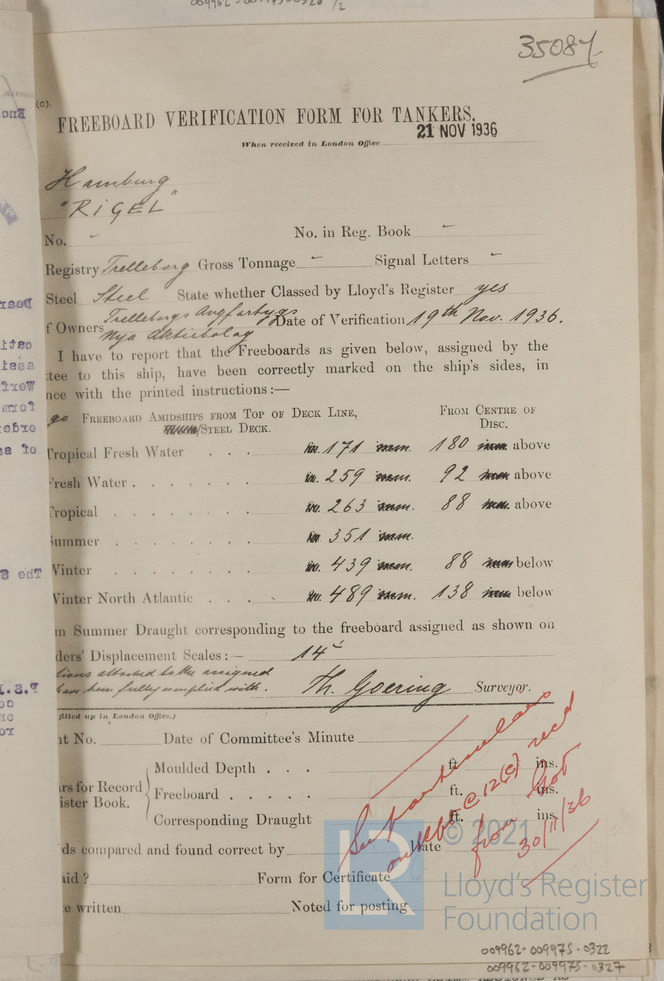 009962-009975-0320/2
35087
(c).
FREEBOARD VERIFICATION FORM FOR TANKERS.
When received in London Office 21 NOV 1936
Hamburg
"RIGEL"
No. - No. in Reg. Book -
Registry Trelleborg Gross Tonnage - Signal Letters -
Steel Steel State whether Classed by Lloyd's Register yes
f Owners Trelleborgs Angfartygs Nya Aktiebolag Date of Verification 19th Nov. 1936.
I have to report that the Freeboards as given below, assigned by the
tee to this ship, have been correctly marked on the ship's sides, in
nce with the printed instructions:—
go FREEBOARD AMIDSHIPS FROM TOP OF DECK LINE, FROM CENTRE OF
/STEEL DECK. DISC.
Tropical Fresh Water . . . 171 mm. 180 mm above
resh Water . . . . . . 259 mm. 92 mm above
ropical . . . . . . 263 mm. 88 mm. above
ummer . . . . . . 351 mm.
Winter . . . . . . 439 mm. 88 mm below
Winter North Atlantic . . . 489 mm. 138 mm below
m Summer Draught corresponding to the freeboard assigned as shown on
ders' Displacement Scales:— 14
tions attached to the assigned
have been fully complied with. Th. Goering Surveyor.
filled up in London Office.)
nt No. Date of Committee's Minute
Moulded Depth . . . ft. ins.
rs for Record Freeboard . . . . . ft. ins.
ister Book. Corresponding Draught ft. ins.
See particulars
on @ 12(c) recd
from Got
30/11/36
ds compared and found correct by Date
aid? Form for Certificate
e written Noted for posting
© 2021
Lloyd's Register
Foundation
009962-009975-0322
009962-009975-0327